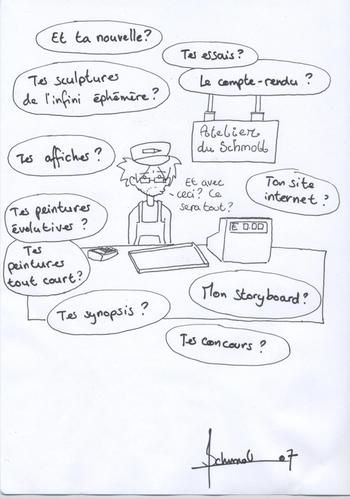 Et ta nouvelle?
Tes essais?
Le compte-rendu?
Tes sculptures
de l'infini éphémère?
Atelier
du Schmoll
Tes affiches?
Et avec
ceci? Ce
sera tout?
Ton site
internet?
Tes peintures
évolutives?
Tes
peintures
tout court?
E 0.00
Mon Storyboard?
Tes synopsis?
Tes concours?
Schmoll 07